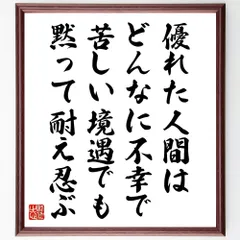 優れた人間は
どんなに不幸で
苦しい境遇でも
黙って耐え忍ぶ